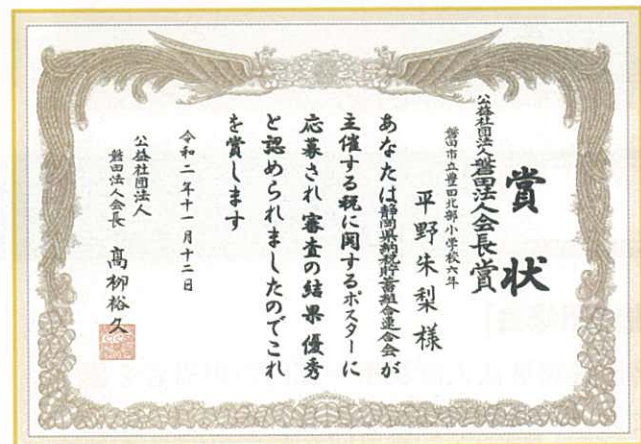 賞状
公益社団法人磐田法人会長賞
磐田市立豊田北部小学校六年
平野朱梨様
あなたは静岡県納税貯蓄組合連合会が
主催する税に関するポスターに
応募され審査の結果優秀
と認められましたのでこれ
を賞します
令和二年十一月十二日
公益社団法人
磐田法人会長 髙柳裕久